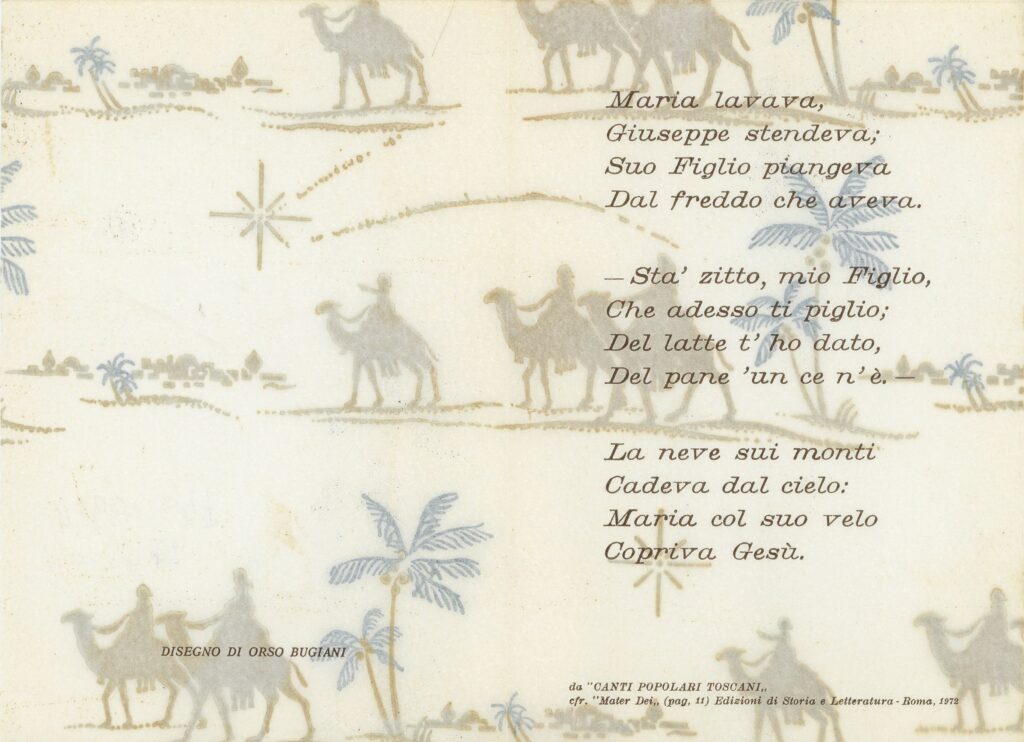 Maria lavava,
Giuseppe stendeva;
Suo Figlio piangeva
Dal freddo che aveva.
— Sta' zitto, mio Figlio,
Che adesso ti piglio;
Del latte t' ho dato,
Del pane 'un ce n'è. —
La neve sui monti
Cadeva dal cielo:
Maria col suo velo
Copriva Gesù.
DISEGNO DI ORSO BUGIANI
da "CANTI POPOLARI TOSCANI„
cfr. "Mater Dei„ (pag. 11) Edizioni di Storia e Letteratura - Roma, 1972